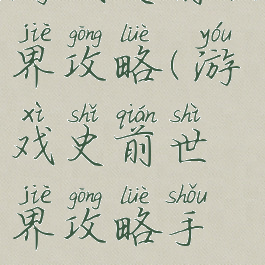 jiè gōng lüè yóu
界攻略(游
xì shǐ qián shì
戏史前世
jiè gōng lüè shǒu
界攻略手